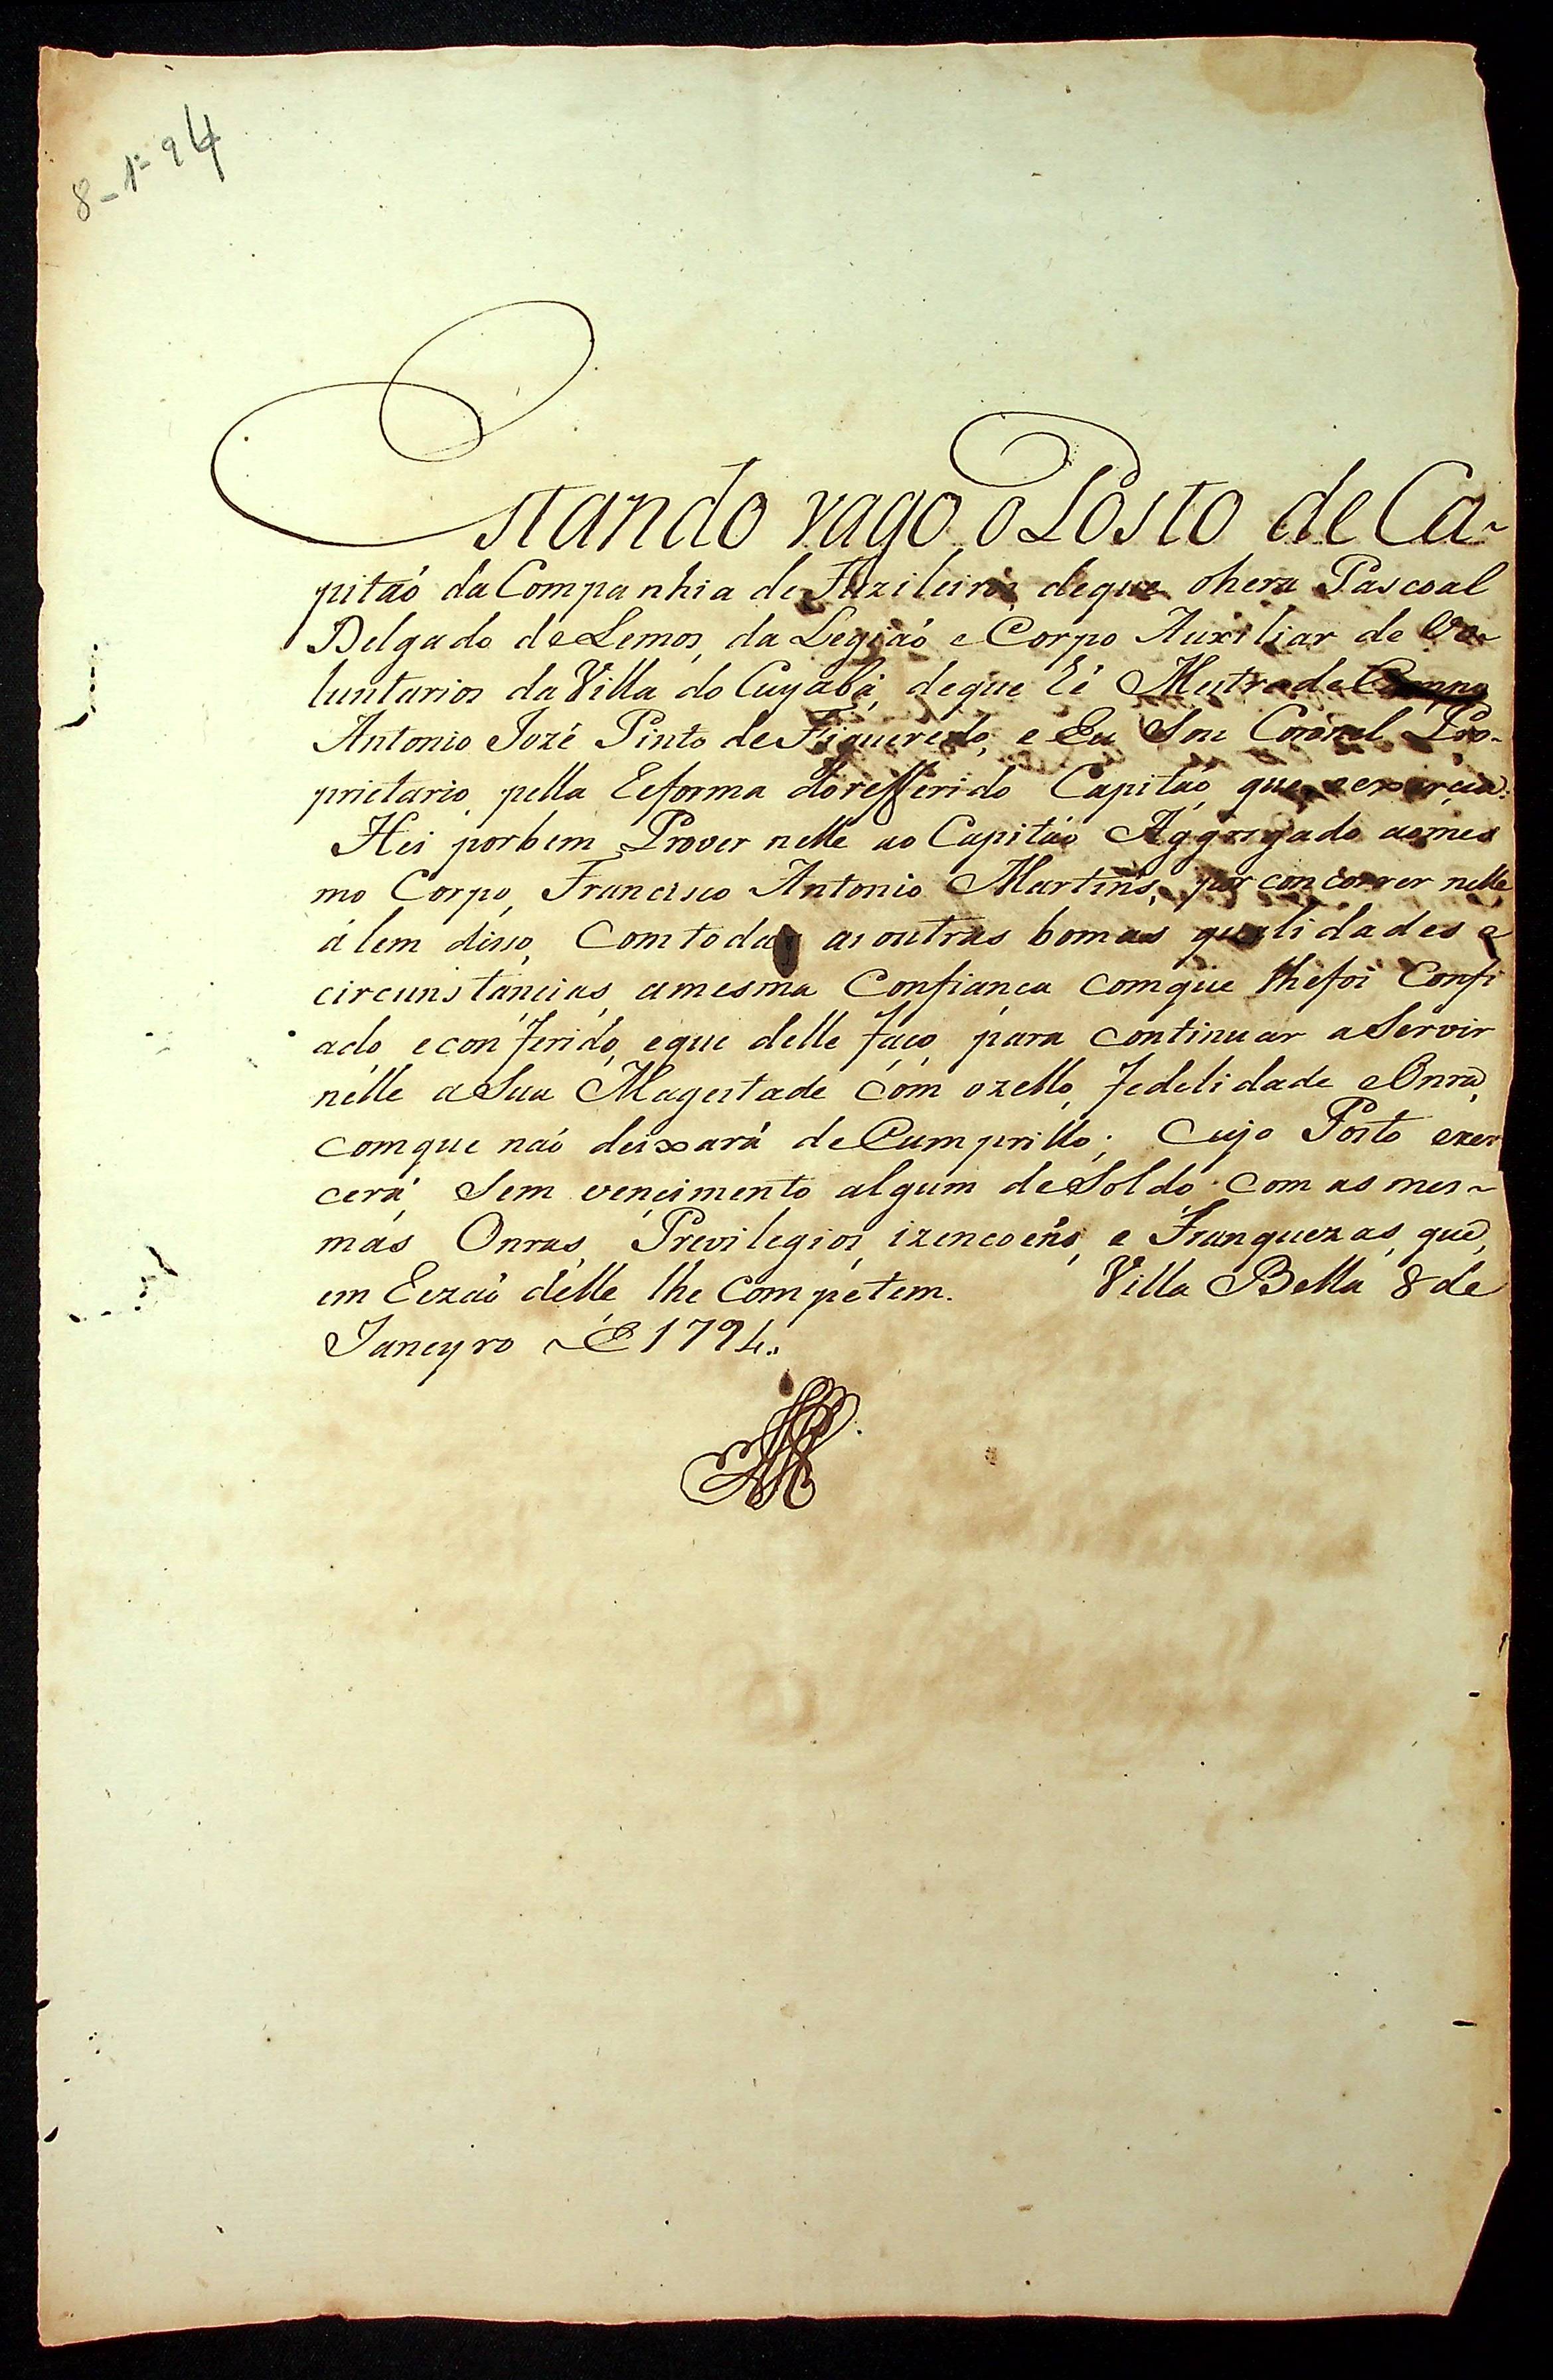 8-1º-94
Estando vago o Posto de Ca-
pitaó da Companhia de Fuzileiros, deque ohera Pascoal
Delgado de Lemos, da Legiaó e Corpo Auxiliar de Vo-
luntarios da Villa do Cuyabá, deque hé Mestre de Campo
Antonio Jozé Pinto de Figueredo, e Eu Sou Coronel Pro-
prietario, pella Reforma do refferido Capitaó, que o exercia:
Hei porbem Prover nelle ao Capitaó Aggregado aomes
mo Corpo, Francisco Antonio Martins, por concorrer nelle
álem disso, Com todas as outras bomas qualidades e
circunstancias, amesma Confiança comque lhefoi Confi
ado e conferido, eque delle faço, para continuar aServir
nelle a Sua Magestade com ozello, fedelidade e Onra,
comque naó deixará de Cumprillo; Cujo Posto exer
cerá, Sem vencimento algum de Soldo Com as mes-
mas Onras, Previlegios, izencoens, e Franquezas, que,
em Rezaó delle, lhe Competem. Villa Bella 8 de
Janeyro de 1794.,